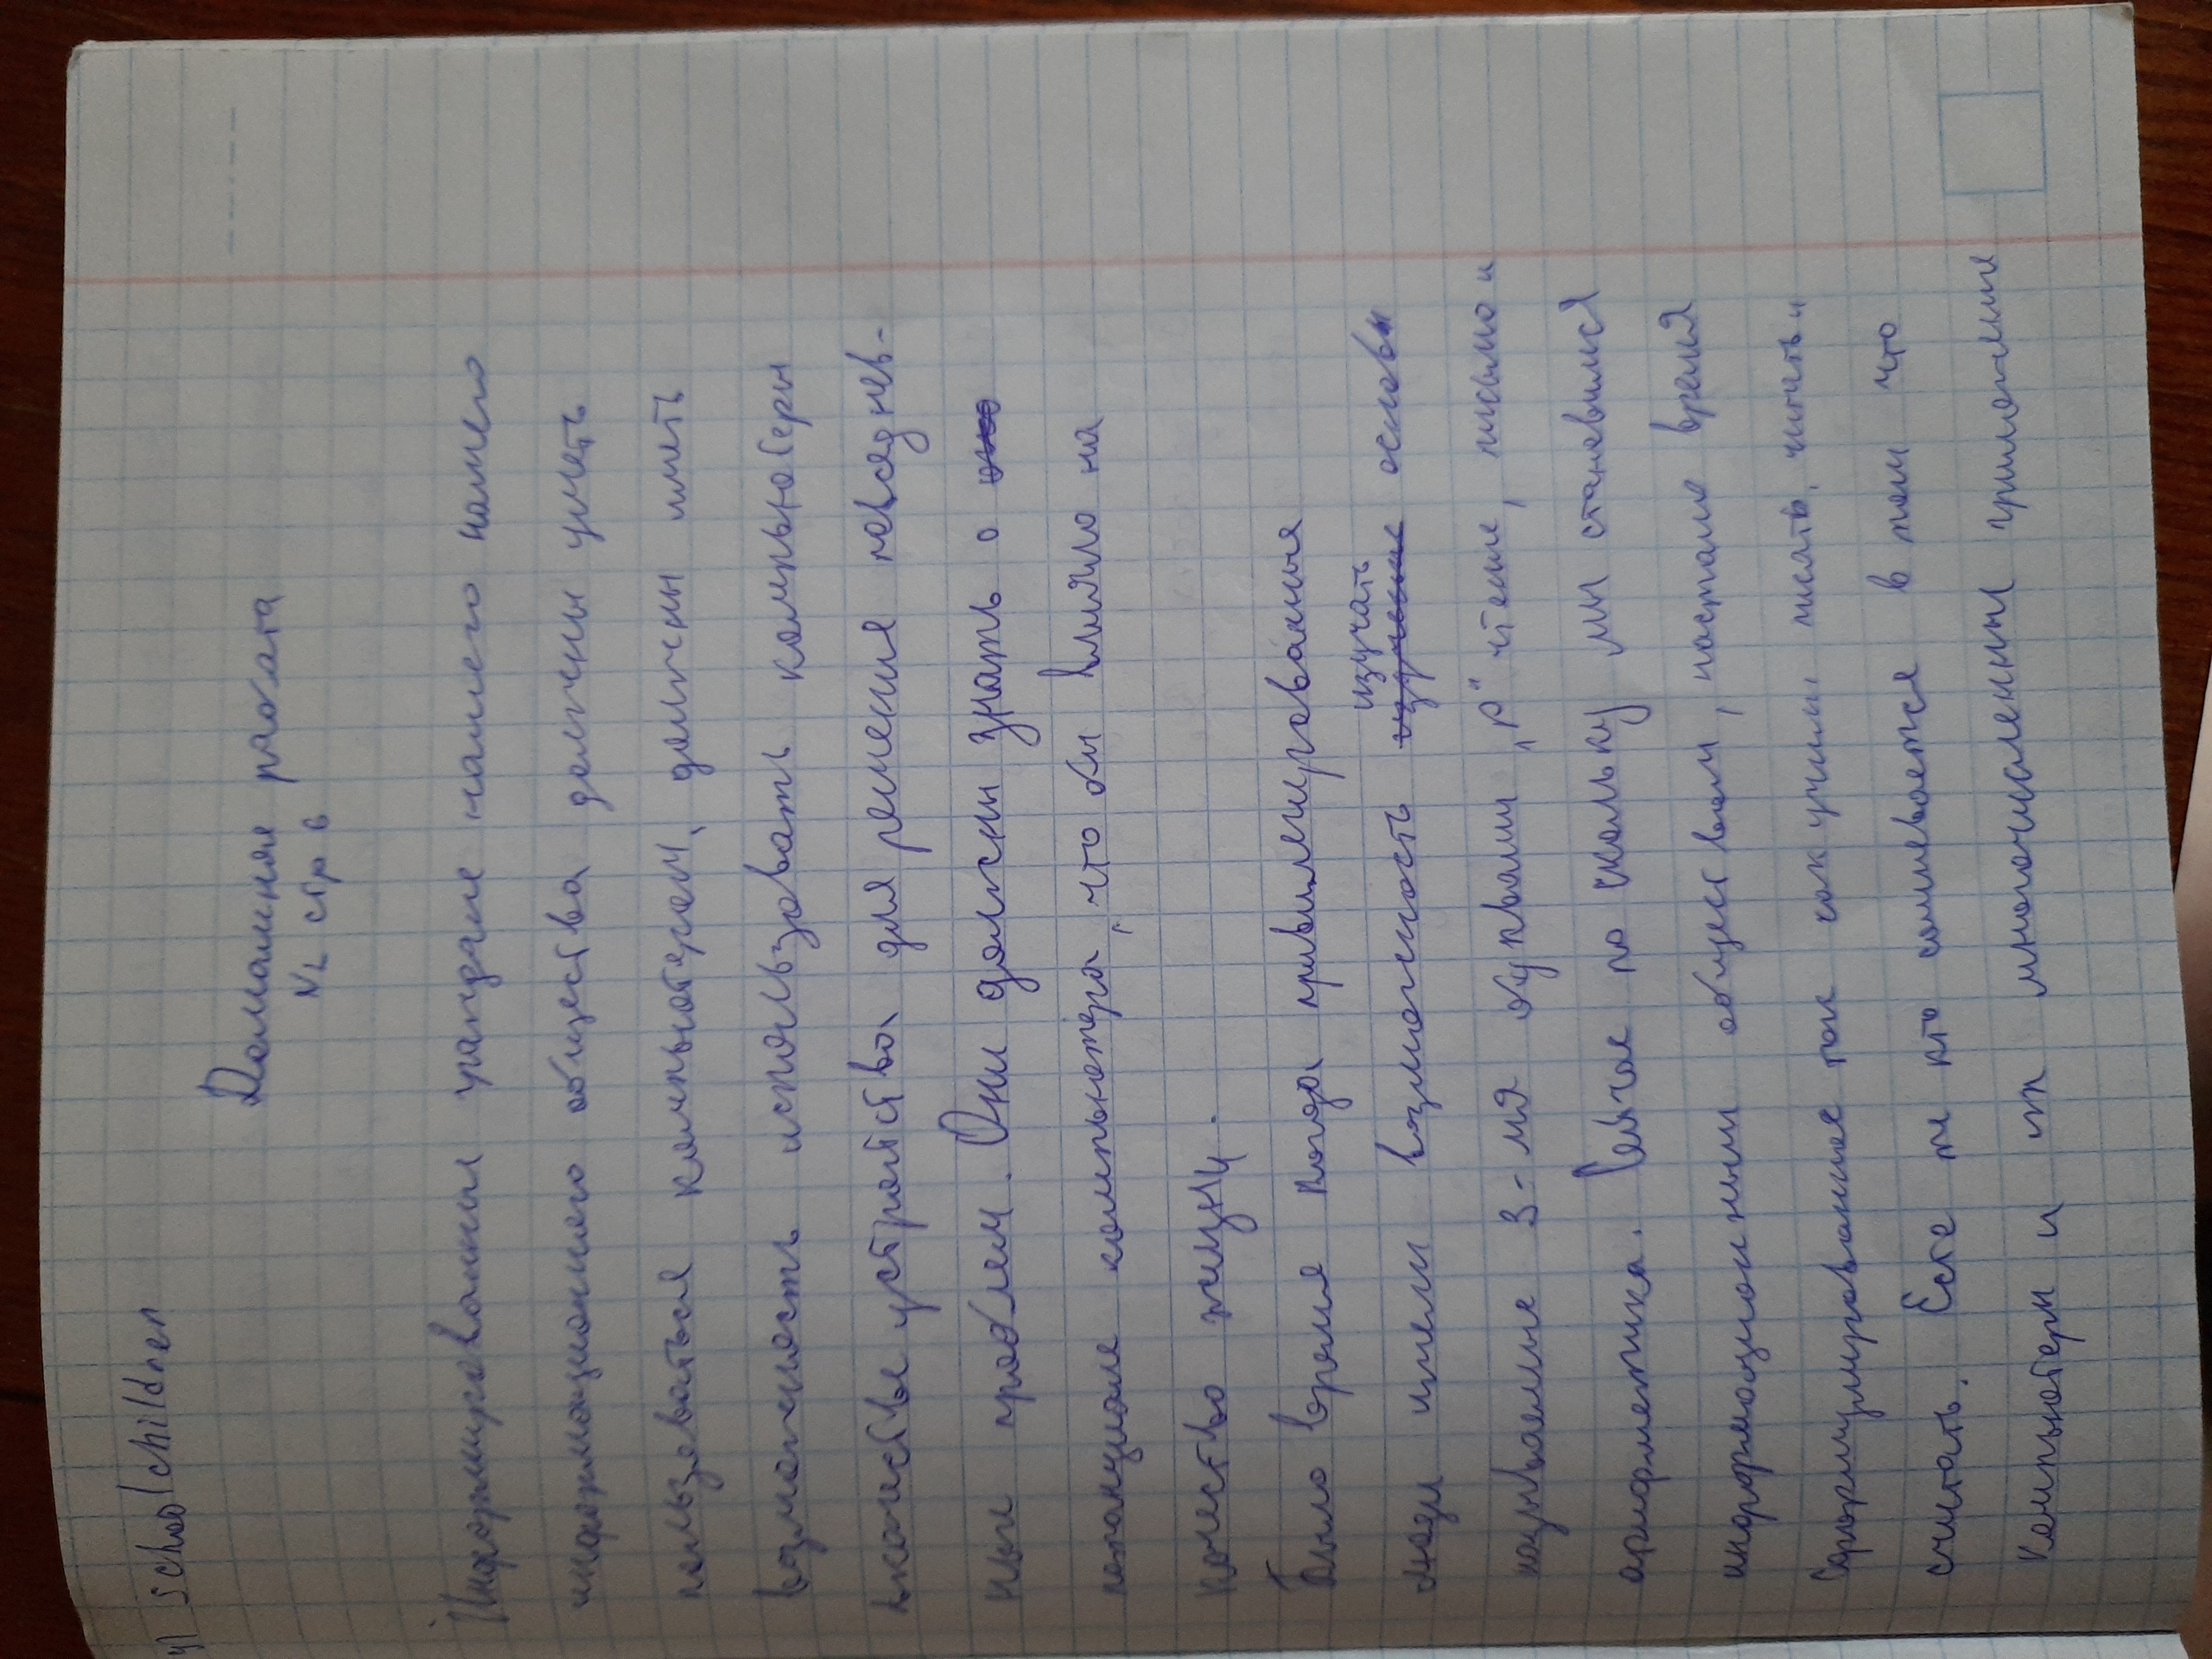 schoolchildren
Домашняя работа
N2 стр 6
Информированных граждане нашего нашего
информационного общества должны уметь
пользоваться компьютером, должны иметь
возможность использовать компьютеры
в качестве устройства для решения повседнев-
ных проблем. Они должны знать о
потенциале компьютера, что бы влияло на
качество жизни.
Было время когда привилегированная
люди имели возможность изучать основы
называемые 3-мя буквами „р" чтение, письмо и
арифметика. Сейчас по скольку мы становимся
информационным обществом, настало время
сформулированное так как учили писать, читать и
считать. Есте те кто сомневается в том что
Компьютеры и их многочисленный приложение